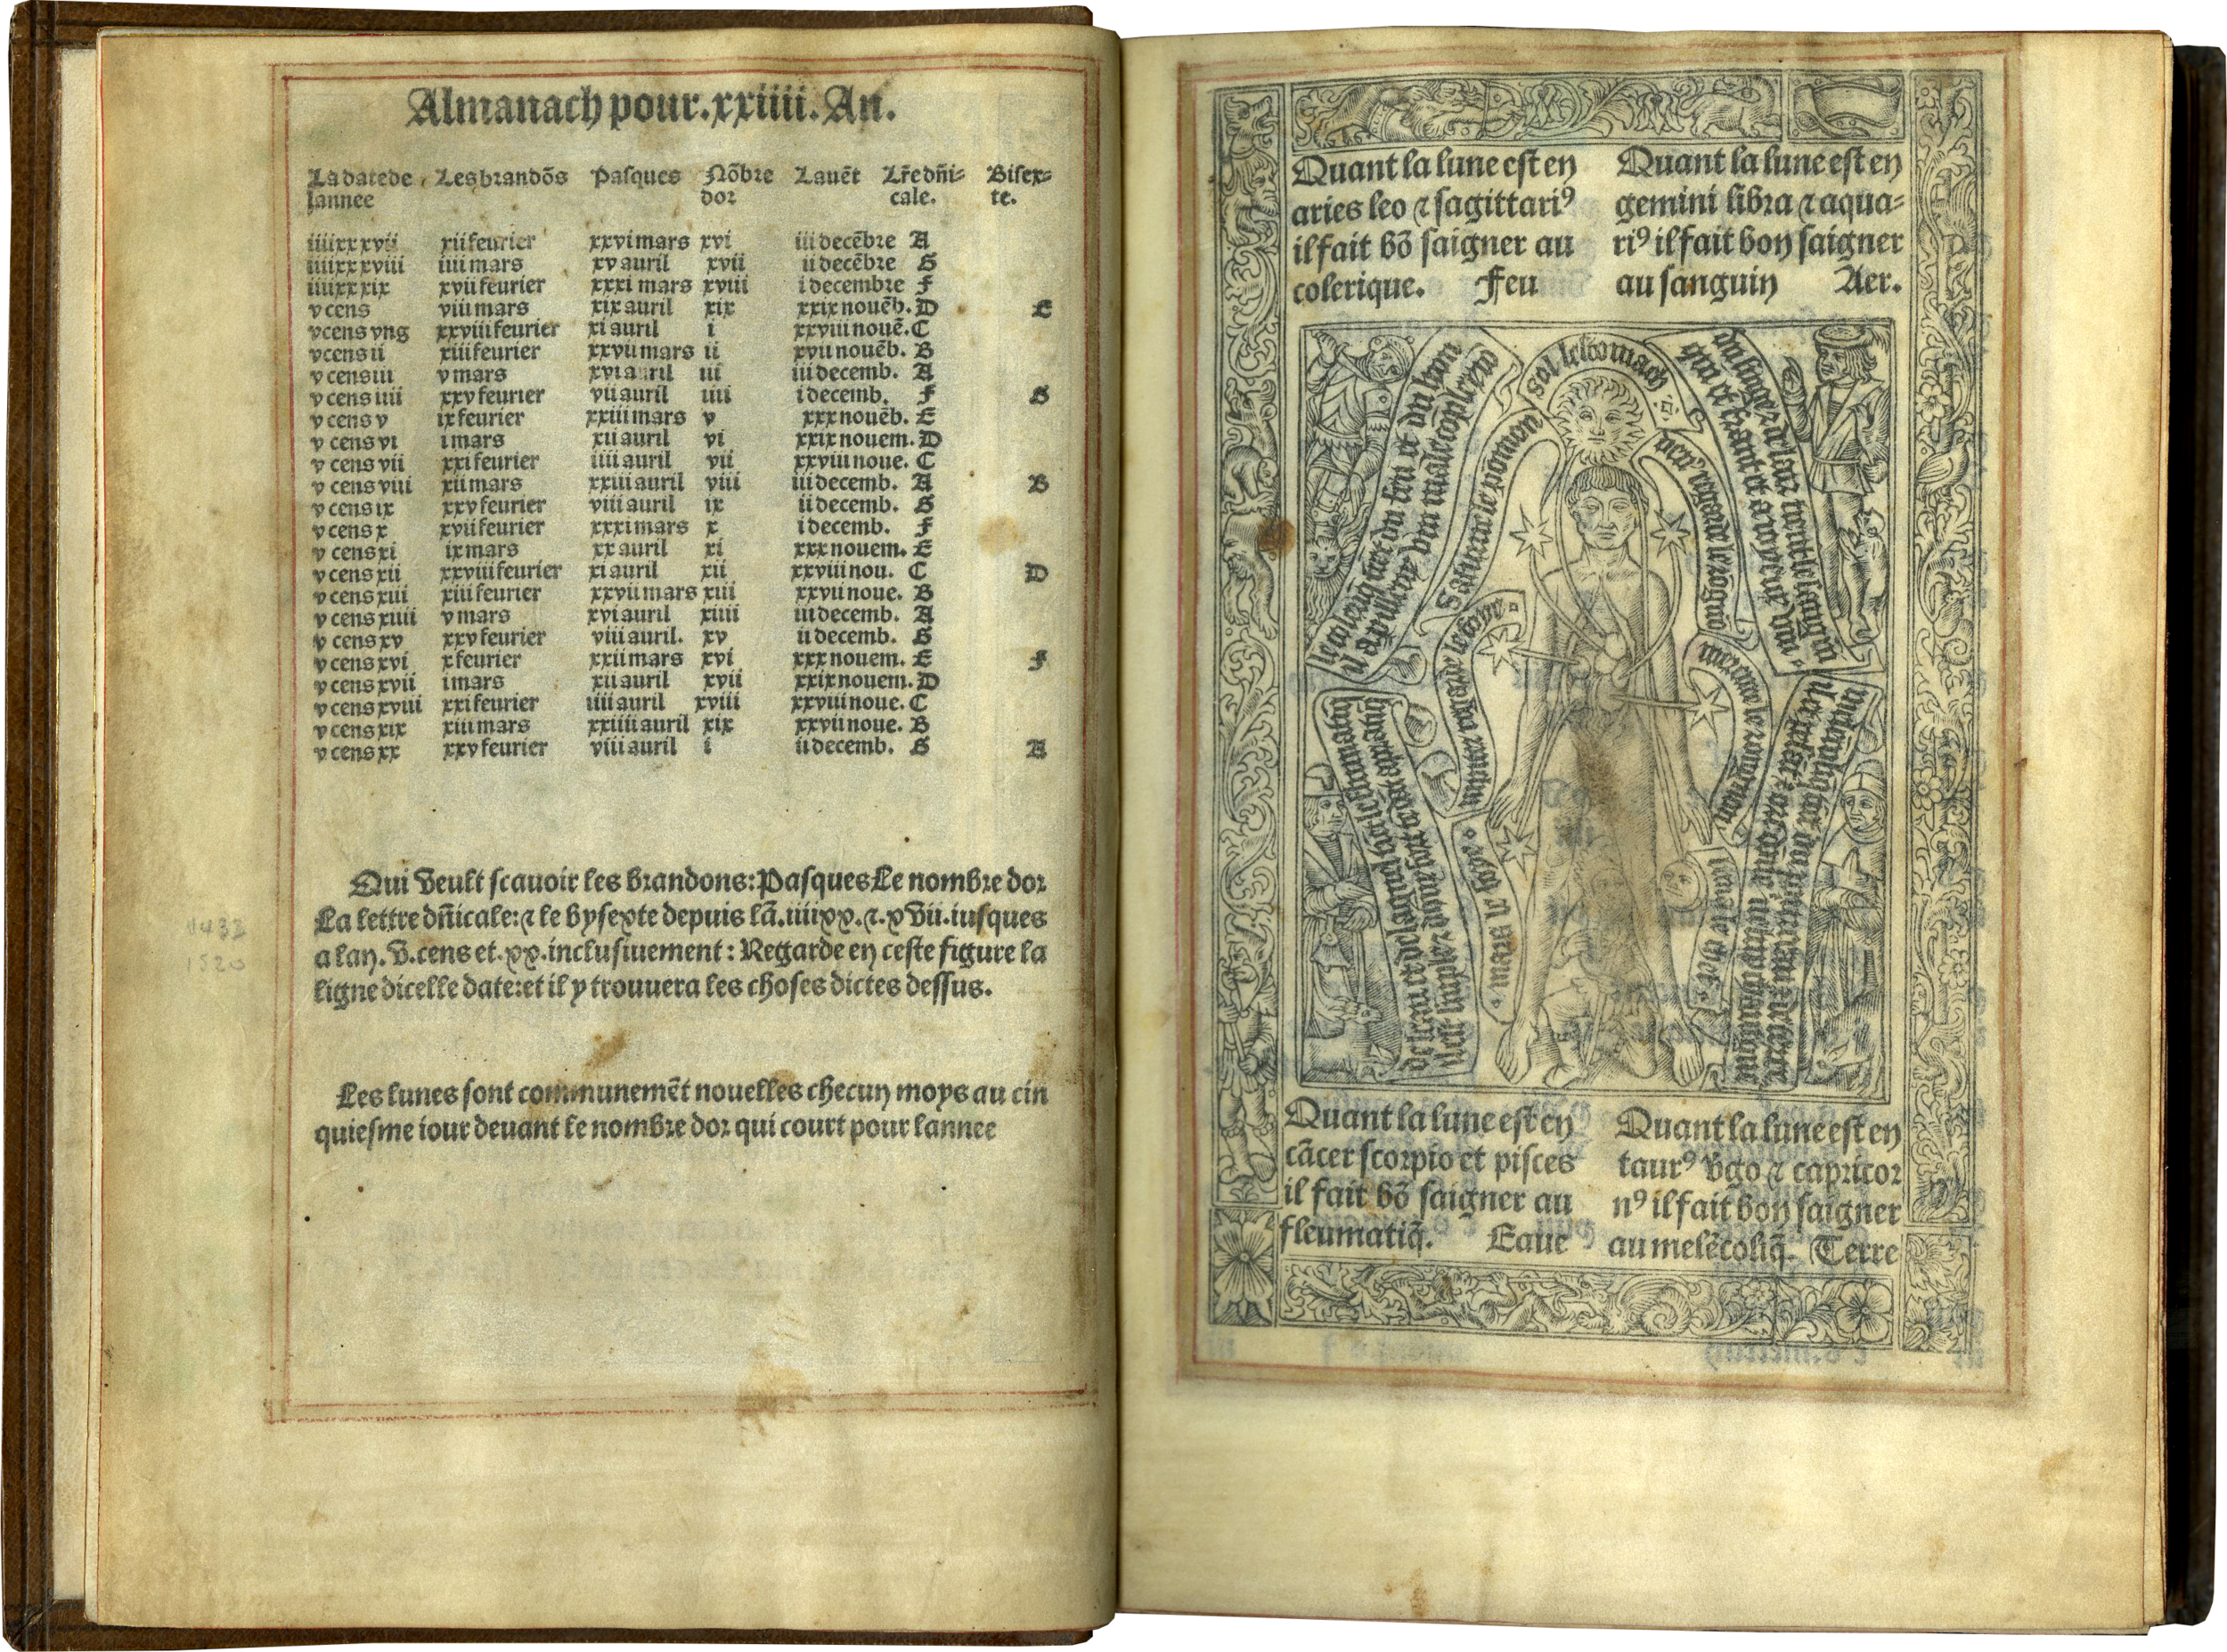 Almanach pour .xxiiii. An.
La date de Les brandōs Pasques Nōbre Lauēt Lr̄e dn̄i= Bisex=
lannee dor cale. te.
iiiixx xvii xii feurier xxvi mars xvi iii decēbre A
iiiixx xviii iiii mars xv auril xvii ii decēbre G
iiiixx xix xvii feurier xxxi mars xviii i decembre F
v cens viii mars xix auril xix xxix nouēb. D E
v cens vng xxviii feurier xi auril i xxviii nouē. C
v cens ii xiii feurier xxvii mars ii xxvii nouēb. B
v cens iii v mars xvi auril iii iii decemb. A
v cens iiii xxv feurier vii auril iiii i decemb. F G
v cens v ix feurier xxiii mars v xxx nouēb. E
v cens vi i mars xii auril vi xxix nouem. D
v cens vii xxi feurier iiii auril vii xxviii noue. C
v cens viii xii mars xxiii auril viii iii decemb. A B
v cens ix xxv feurier viii auril ix ii decemb. G
v cens x xvii feurier xxxi mars x i decemb. F
v cens xi ix mars xx auril xi xxx nouem. E
v cens xii xxviii feurier xi auril xii xxviii nou. C D
v cens xiii xiii feurier xxvii mars xiii xxvii noue. B
v cens xiiii v mars xvi auril xiiii iii decemb. A
v cens xv xxv feurier viii auril. xv ii decemb. G
v cens xvi x feurier xxiii mars xvi xxx nouem. E F
v cens xvii i mars xii auril xvii xxix nouem. D
v cens xviii xxi feurier iiii auril xviii xxviii noue. C
v cens xix xiii mars xxiiii auril xix xxvii noue. B
v cens xx xxv feurier viii auril i ii decemb. G A
Qui veult scauoir les brandons: Pasques Le nombre dor
La lettre dn̄icale: ⁊ le bysexte depuis lā. iiiixx. ⁊. xvii. iusques
a lan. v. cens et. xx. inclusiuement: Regarde en ceste figure la
ligne dicelle date: et il y trouuera les choses dictes dessus.
Les lunes sont communemēt nouelles checun moys au cin
quiesme iour deuant le nombre dor qui court pour lannee
1520
Quant la lune est en
aries leo ⁊ sagittariꝰ
il fait bō saigner au
colerique. Feu
Quant la lune est en
gemini libra ⁊ aqua=
riꝰ il fait bon saigner
au sanguin Aer.
sol lestomach
Saturne le pōmon
venꝰ regarde le rōgnō
iupiter le foye
mercure le rongnon
mars le fiel
lune le chef
Quant la lune est en
cācer scorpio et pisces
il fait bō saigner au
fleumatiq̄. Eaue
Quant la lune est en
taurꝰ v̄go ⁊ capricor
nꝰ il fait bon saigner
au melēcoliq̄. Terre